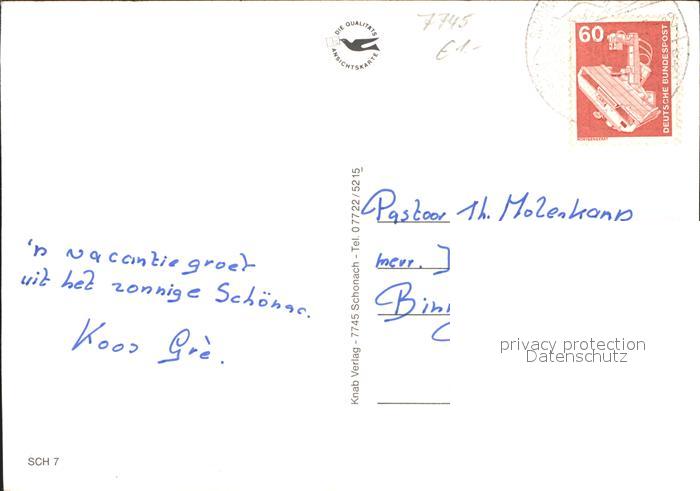 DIE QUALITÄTS
ANSICHTSKARTE
7745
€1.-
60
DEUTSCHE BUNDESPOST
RÖNTGENGERÄT
Knab Verlag - 7745 Schonach - Tel. 07722/5215
Pastoor Th. Molenkamp
mevr.
'n vacantie groet
uit het zonnige Schönac.
Koos Grè.
privacy protection
Datenschutz
SCH 7